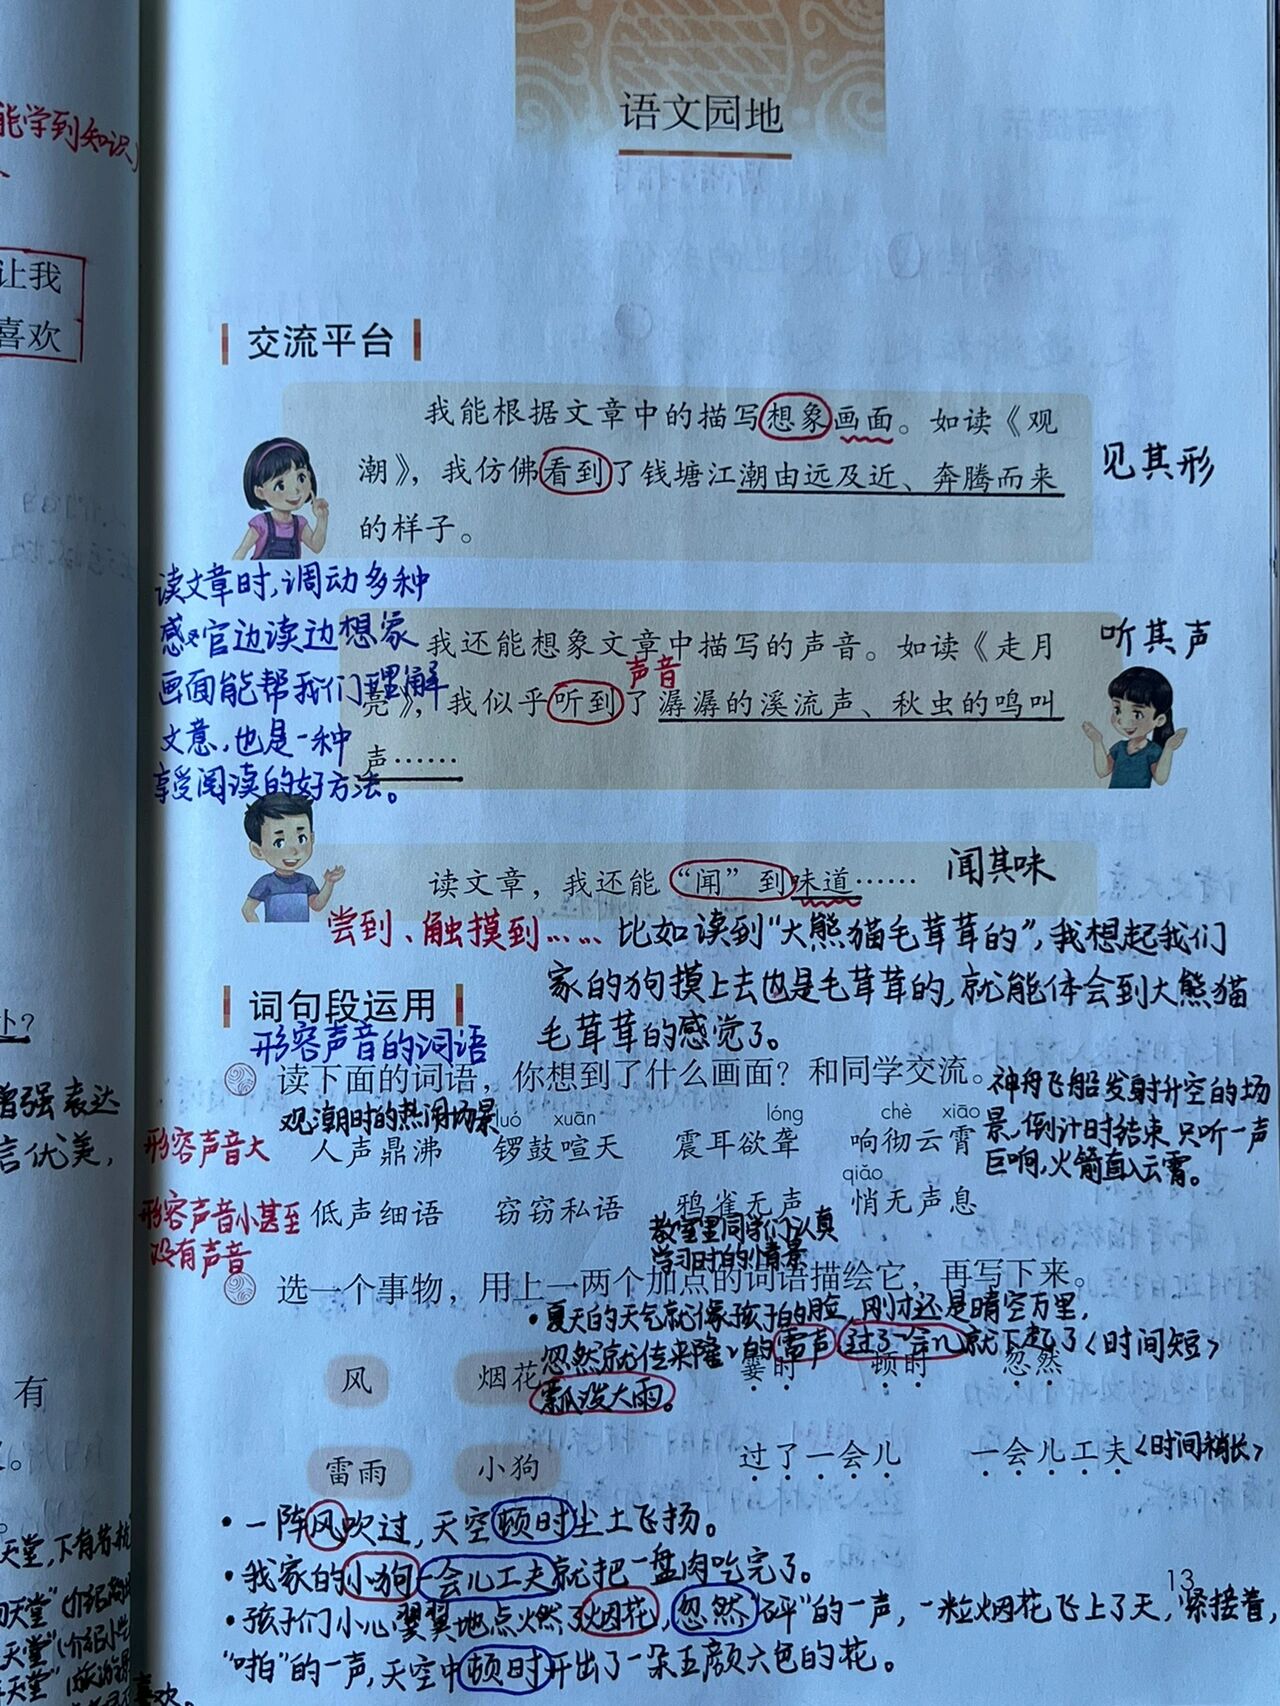 能学到知识
让我
喜欢
增强表达
言优美,
有
天堂,下有苏杭
喜欢。
语文园地
交流平台
我能根据文章中的描写想象画面。如读《观
潮》，我仿佛看到了钱塘江潮由远及近、奔腾而来
的样子。
见其形
读文章时,调动多种
感官边读边想象
画面能帮我们理解
文意,也是一种
享受阅读的好方法。
我还能想象文章中描写的声音。如读《走月
亮》，我似乎听到了潺潺的溪流声、秋虫的鸣叫
声……
声音
听其声
读文章，我还能“闻”到味道……
闻其味
尝到、触摸到……
比如读到“大熊猫毛茸茸的”,我想起我们
家的狗摸上去也是毛茸茸的,就能体会到大熊猫
毛茸茸的感觉了。
词句段运用
形容声音的词语
读下面的词语，你想到了什么画面？和同学交流。
观潮时的热闹场景
神舟飞船发射升空的场
景,倒计时结束,只听一声
巨响,火箭直入云霄。
luó xuān lóng chè xiāo
形容声音大
人声鼎沸 锣鼓喧天 震耳欲聋 响彻云霄
qiǎo
形容声音小甚至
没有声音
低声细语 窃窃私语 鸦雀无声 悄无声息
教室里同学们认真
学习时的情景
选一个事物，用上一两个加点的词语描绘它，再写下来。
•夏天的天气就像孩子的脸,刚才还是晴空万里,
忽然就传来隆隆的雷声,过了一会儿就下起了
瓢泼大雨。
<时间短>
风 烟花 霎时 顿时 忽然
雷雨 小狗 过了一会儿 一会儿工夫
<时间稍长>
•一阵风吹过,天空顿时尘土飞扬。
•我家的小狗一会儿工夫就把一盘肉吃完了。
13
•孩子们小心翼翼地点燃了烟花,忽然“砰”的一声,一粒烟花飞上了天,紧接着,
“啪”的一声,天空中顿时开出了一朵五颜六色的花。